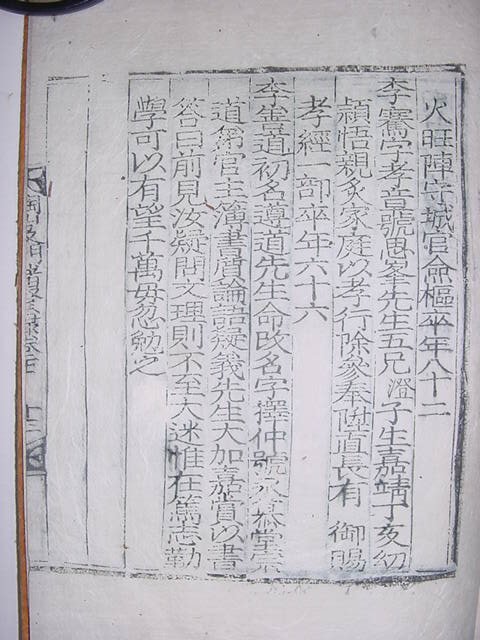 火旺陣守城官僉樞卒年八十二
李騫字孝音號思峯先生五兄澄子生嘉靖丁亥幼
頴悟親炙家庭以孝行除參奉陞直長有 御賜
孝經一部卒年六十六
李善道初名遵道先生命改名字擇仲號永慕堂
道為官主簿書質論語疑義先生大加嘉賞以書
答曰前見汝疑問文理則不至大迷惟在篤志勤
學可以有望千萬毋忽勉之
陶山及門諸賢錄卷五